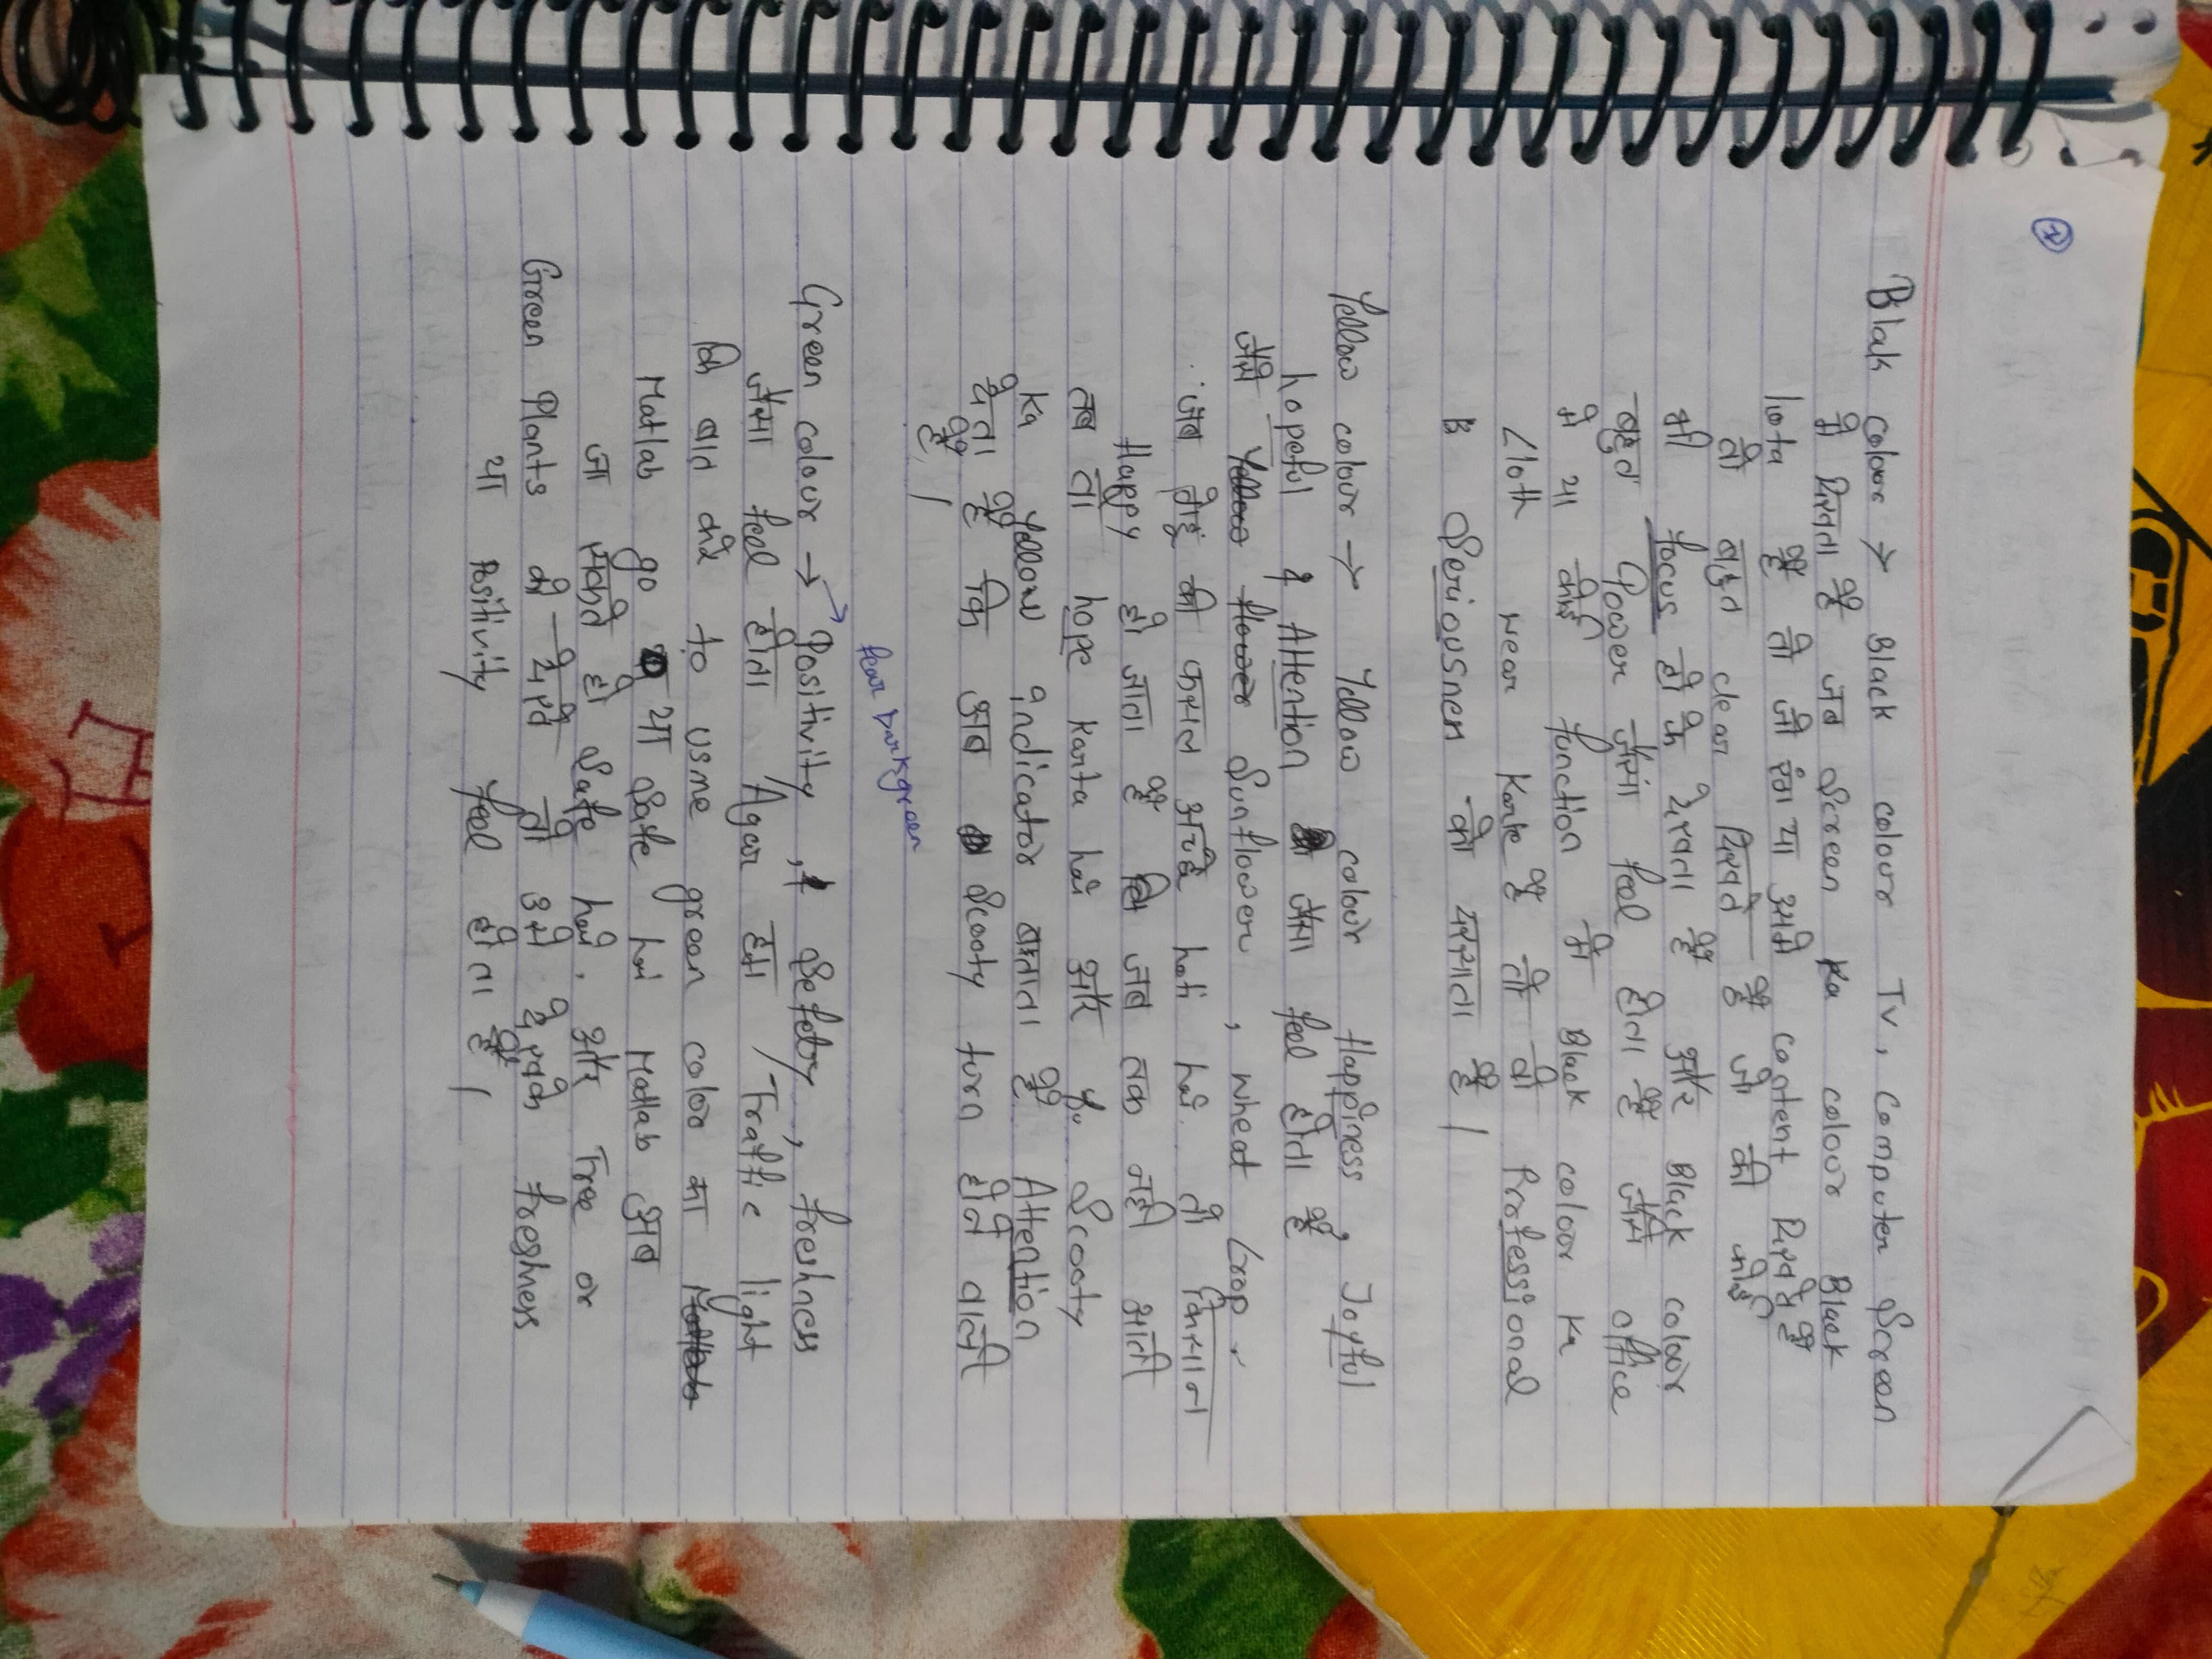 7
Blak colour → Black colour Tv, Computer Screen
में दिखता है जब Screen Ka colour Black
hota है तो जो रंग या उसमे content दिखते है
तो बहुत clear दिखते है जो की कोई
भी focus हो के देखता है और Black colour
बहुत Power जैसा feel होता है जैसे office
मे या कोई function मे Black colour Ka
Cloth wear Karte है तो वो Professional
& Seriousnen को दरसाता है।
Yellow colour → Yellow colour Happiness, Joyful
hopeful & Attention जैसा feel होता है
जैसे Yellow flower Sunflower, wheat Crop.
जब गेहूं की फसल अच्छे hoti hai. तो किसान
Happy हो जाता है जब तक नही आती
तब ता hope karta hai और Scooty
Ka Yellow indicator बताता है Attention
देता है कि अब Scooty turn होने वाली
है।
fear Darkgreen
Green colour → Positivity, Sefetry, freshness
जैसा feel होता Agar हम Traffic light
कि बात करे to usme green color का Matlab
Matlab go या Safe hai Matlab अब
जा सकते हो Safe hai. और Tree or
Green Plants को देखे तो उसे देखके freshness
या Positivity feel होता है।